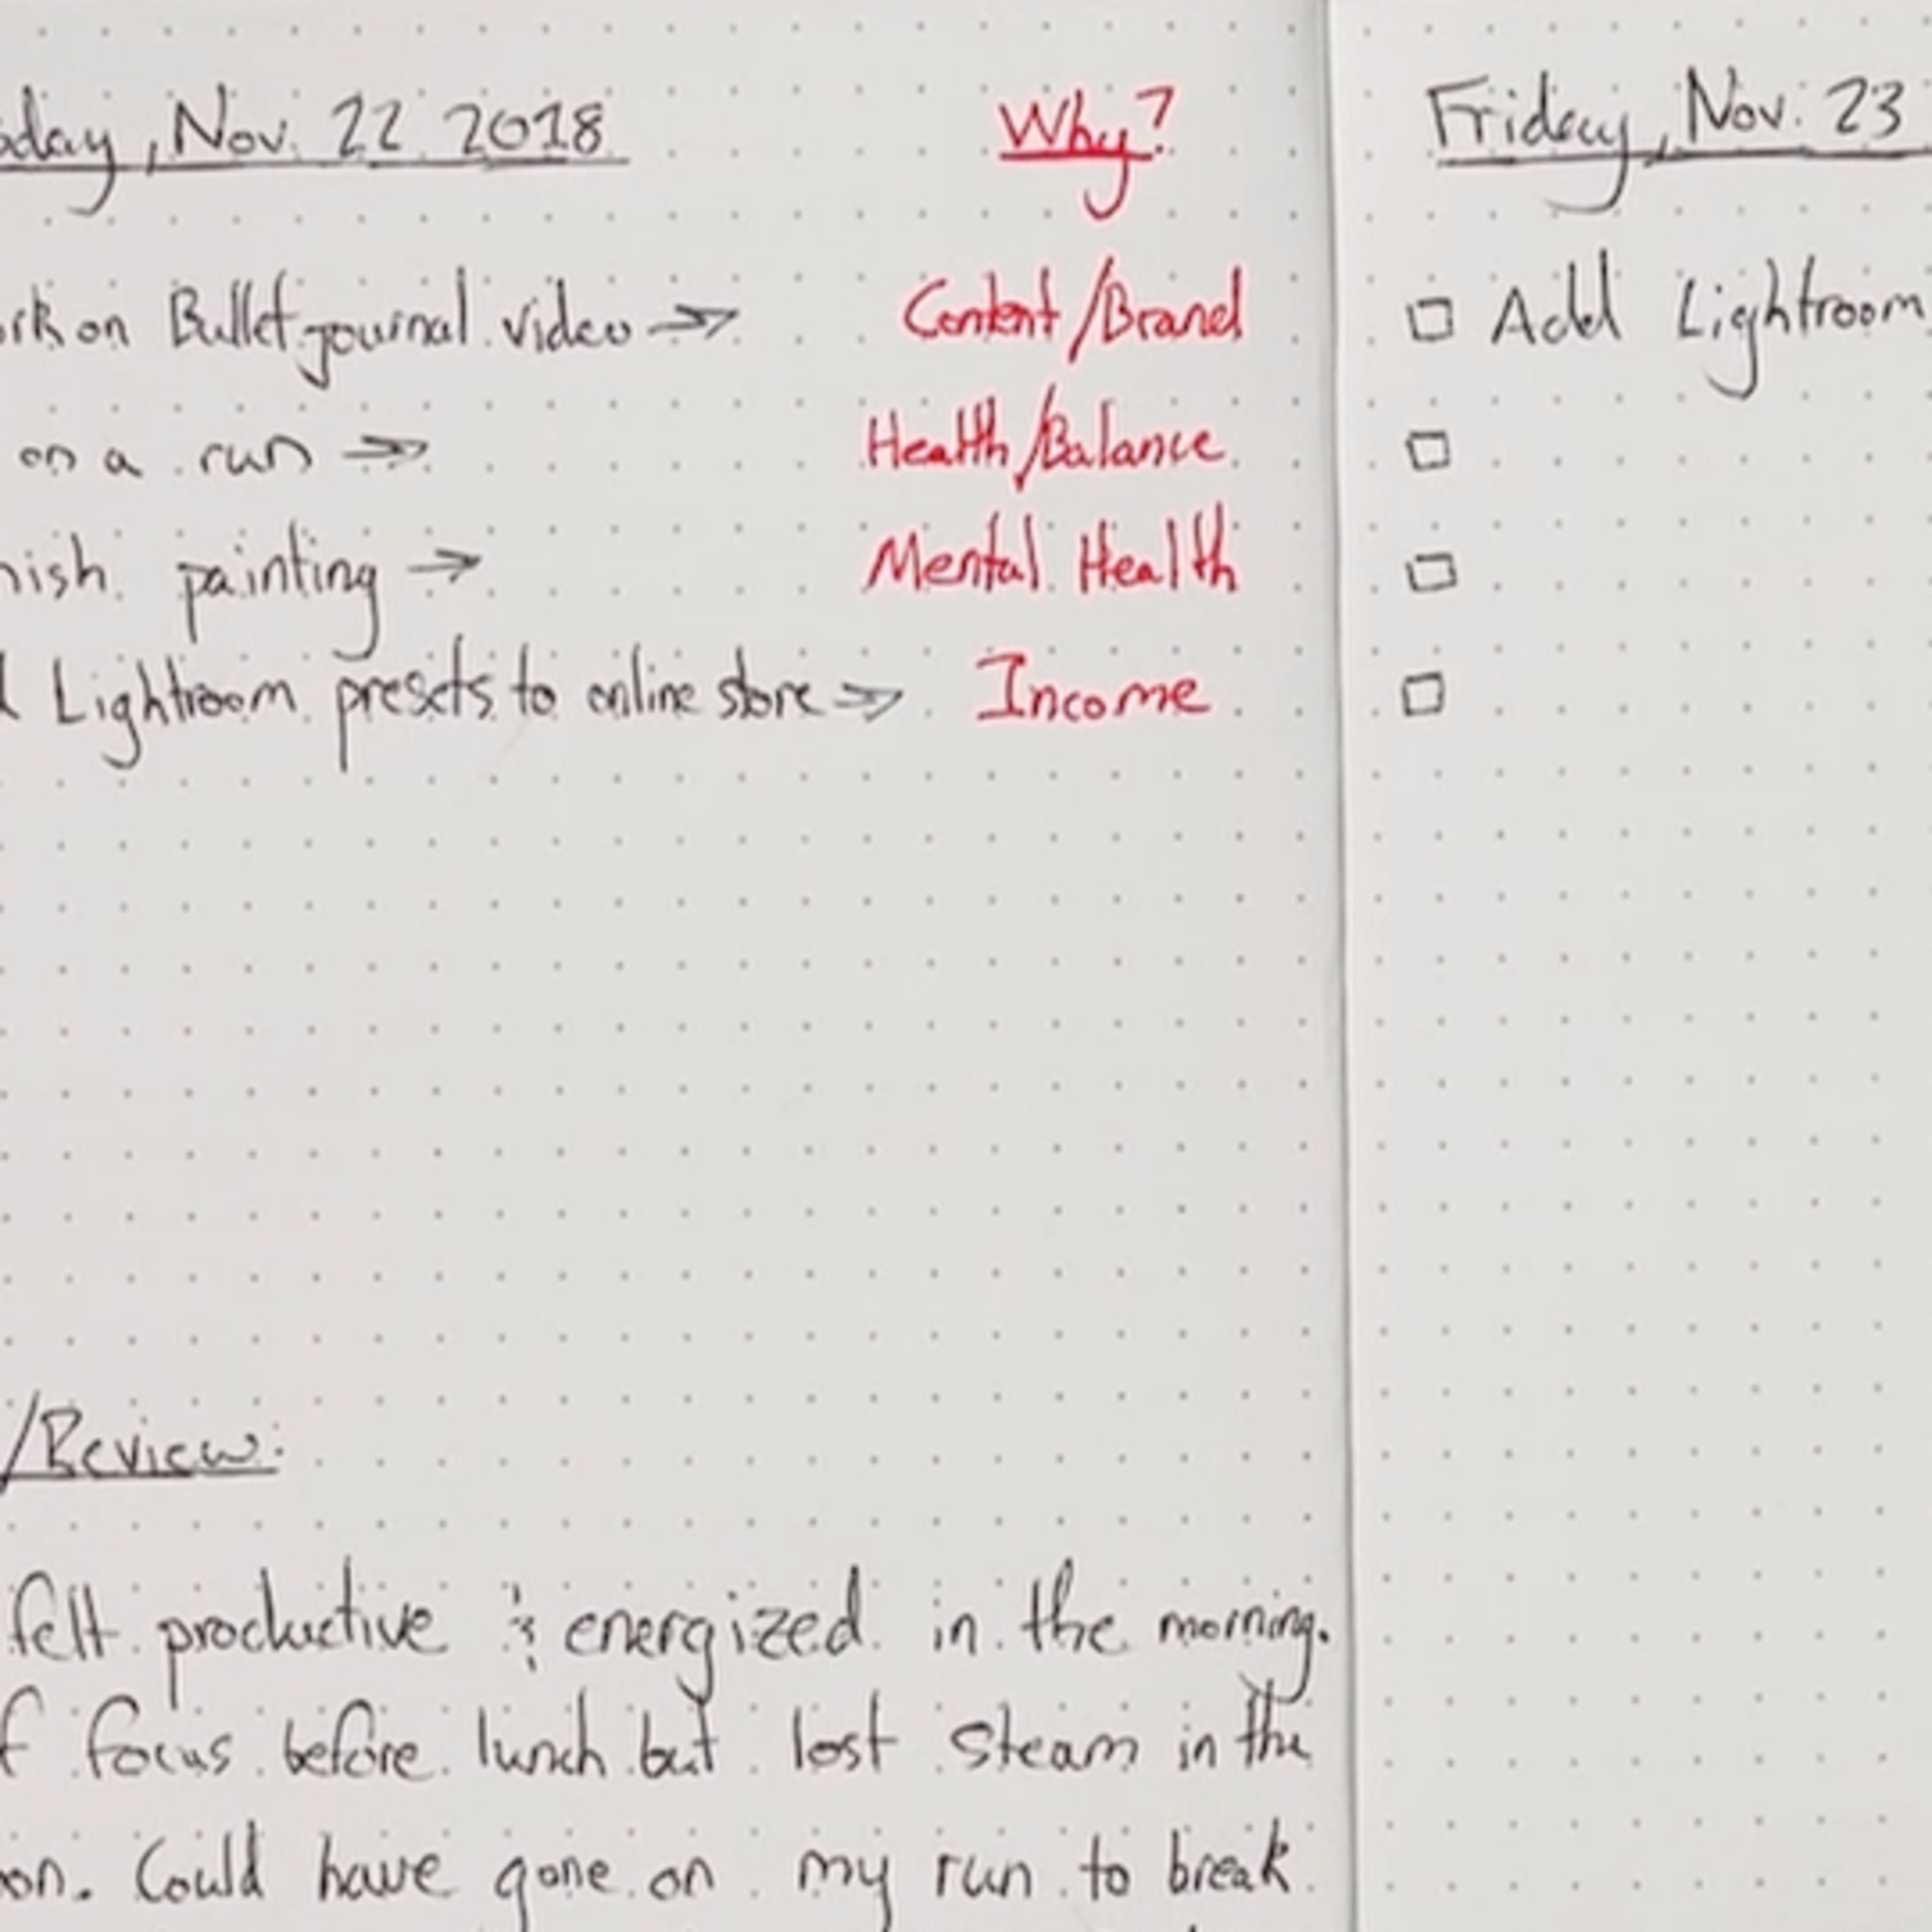 day, Nov. 22 2018
Why?
ork on Bullet journal video →
Content/Brand
on a run →
Health/Balance
nish painting →
Mental Health
d Lightroom presets to online store →
Income
/Review:
felt productive & energized in the morning.
f focus before lunch but lost steam in the
oon. Could have gone on my run to break
Friday, Nov. 23
Add Lightroom